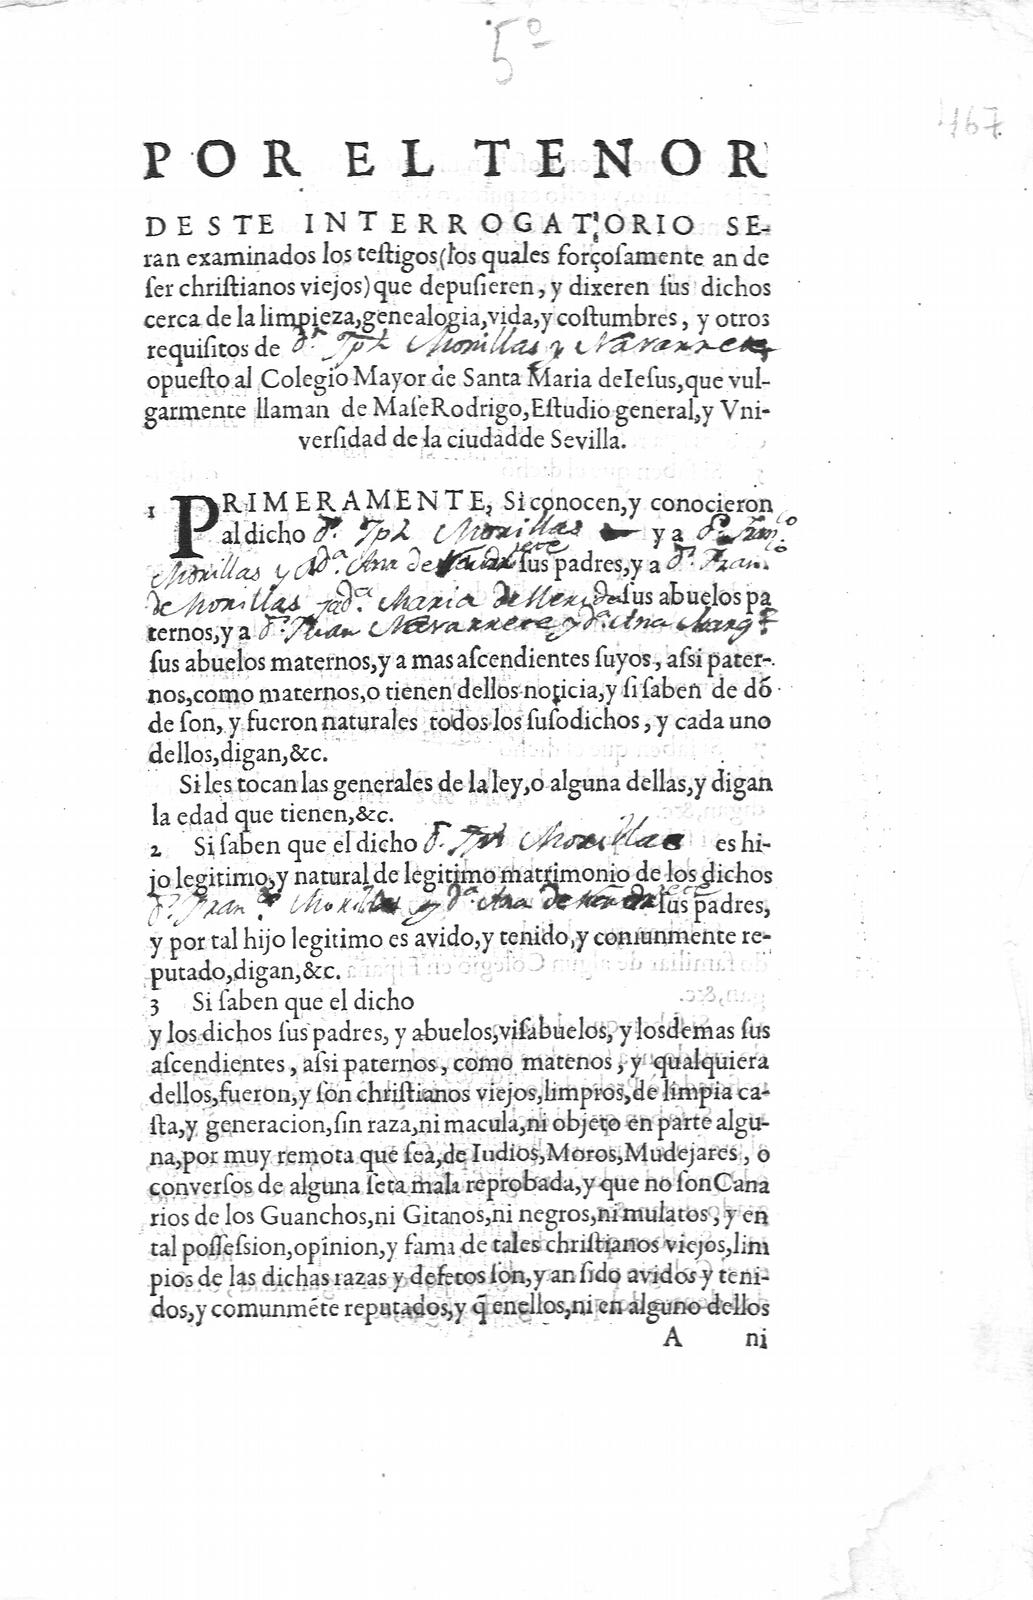 5º
167
POR EL TENOR
DESTE INTERROGATORIO SE-
ran examinados los teſtigos (los quales forçoſamente an de
ſer chriſtianos viejos) que depuſieren, y dixeren ſus dichos
cerca de la limpieza, genealogia, vida, y coſtumbres, y otros
requiſitos de Dn. Jph Morillas y Navarrete
opueſto al Colegio Mayor de Santa Maria de Ieſus, que vul-
garmente llaman de Maſe Rodrigo, Eſtudio general, y Vni-
verſidad de la ciudad de Sevilla.
1 PRIMERAMENTE, Si conocen, y conocieron
al dicho Dn. Jph Morillas y a Dn. Franco
Morillas y Da. Ana de ſus padres, y a Dn. Franco
de Morillas y a Da. Maria de ſus abuelos pa
ternos, y a Dn. Juan Navarrete y Da. Ana
ſus abuelos maternos, y a mas aſcendientes ſuyos, aſsi pater-
nos, como maternos, o tienen dellos noticia, y ſi ſaben de dõ
de ſon, y fueron naturales todos los ſuſodichos, y cada uno
dellos, digan, &c.
Si les tocan las generales de la ley, o alguna dellas, y digan
la edad que tienen, &c.
2 Si ſaben que el dicho Dn. Jph Morillas es hi-
jo legitimo, y natural de legitimo matrimonio de los dichos
Dn. Franco Morillas y Da. Ana de ſus padres,
y por tal hijo legitimo es avido, y tenido, y comunmente re-
putado, digan, &c.
3 Si ſaben que el dicho
y los dichos ſus padres, y abuelos, viſabuelos, y losdemas ſus
aſcendientes, aſsi paternos, como matenos, y qualquiera
dellos, fueron, y ſon chriſtianos viejos, limpros, de limpia ca-
ſta, y generacion, ſin raza, ni macula, ni objeto en parte algu-
na, por muy remota que ſea, de Iudios, Moros, Mudejares, o
converſos de alguna ſeta mala reprobada, y que no ſon Cana
rios de los Guanchos, ni Gitanos, ni negros, ni mulatos, y en
tal poſſeſsion, opinion, y fama de tales chriſtianos viejos, lim
pios de las dichas razas y defetos ſon, y an ſido avidos y teni-
dos, y comunmẽte reputados, y q̃ enellos, ni en alguno dellos
A ni